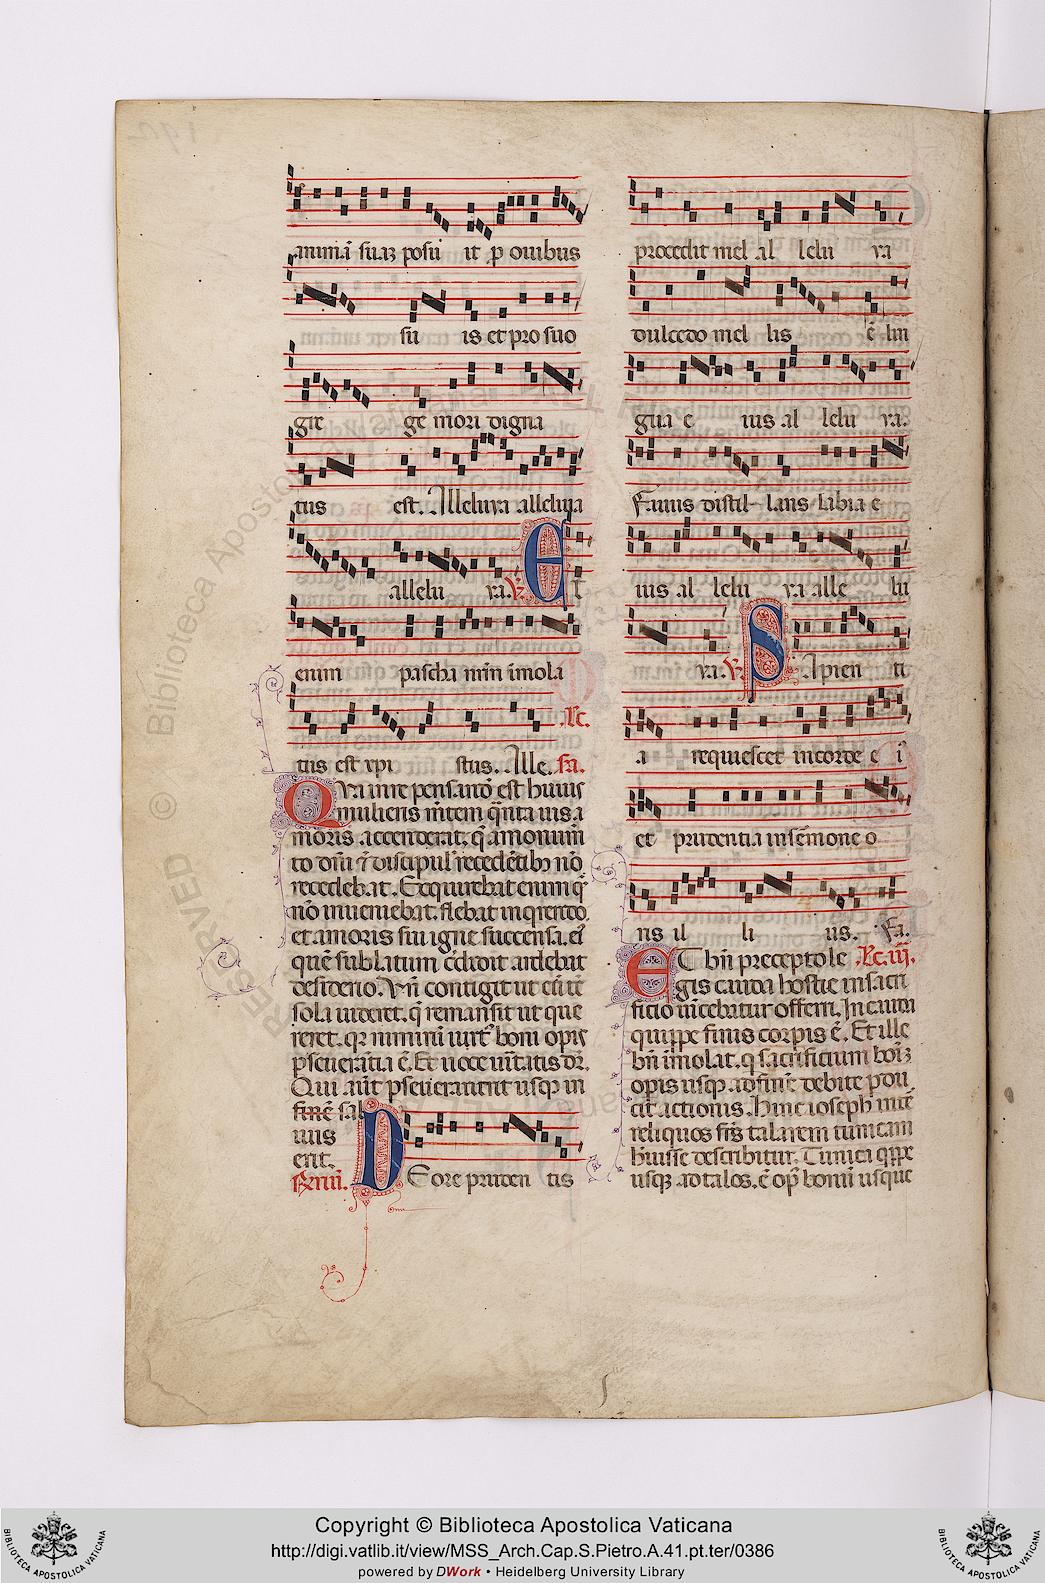 animā suaz posu it p ouibus
su is et pro suo
gre ge mori digna
tus est. Alleluya alleluya
allelu ya. ℣. E t
enim pascha nrm imola
tus est xpi stus. Alle. fa. Rc.
Qua in re pensandū est huius
mulieris mentem q̄nta uis a
moris accenderat. q̄ a monum̄
to dn̄i ⁊ discipul' recedētibꝫ nō
recedebat. Exquirebat enim q̄
nō inueniebat. flebat inq̄rendo.
et amoris sui igne succensa. eī
quē sublatum c̄didit ardebat
desiderio. Vn̄ contigit ut eū tē
sola uideret. q̄ remansit ut que
reret. qr̄ nimirū uirt' boni opis
pseuerātia ē. Et uoce ueritatis dr̄.
Qui aut̄ pseuerauerit usqꝫ in
finē sal
uus
erit.
D E ore pruden tis
procedit mel al lelu ya
dulcedo mel lis ē lin
gua e ius al lelu ya.
Fauus distil lans labia e
ius al lelu ya alle lu
ya. ℣. S Apien ti
a requiescet in corde e i
et prudentia in sermone o
ris il li us. Fa.
Et bn̄ precepto le Rc. iii.
gis cauda hostie in sacri
ficio iubebatur offerri. In cauda
quippe finis corpis ē. Et ille
bn̄ imolat. q sacrificium boni
opis usqꝫ ad finē debite pdu
cit actionis. Hinc ioseph inter
reliquos frīs talarem tunicam
huisse describitur. Tunica qippe
usqꝫ ad talos. ē opꝰ bonū usque
Copyright © Biblioteca Apostolica Vaticana
http://digi.vatlib.it/view/MSS_Arch.Cap.S.Pietro.A.41.pt.ter/0386
powered by DWork • Heidelberg University Library
BIBLIOTECA APOSTOLICA VATICANA
BIBLIOTECA APOSTOLICA VATICANA